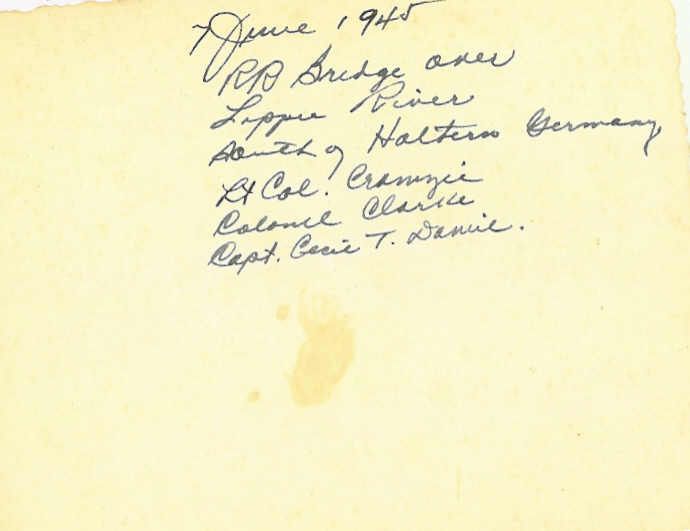 7 June 1945
RR Bridge over
Lippe River
south of Haltern Germany
Lt Col.
Colonel Clarke
Capt. Cecil T. Daniel.